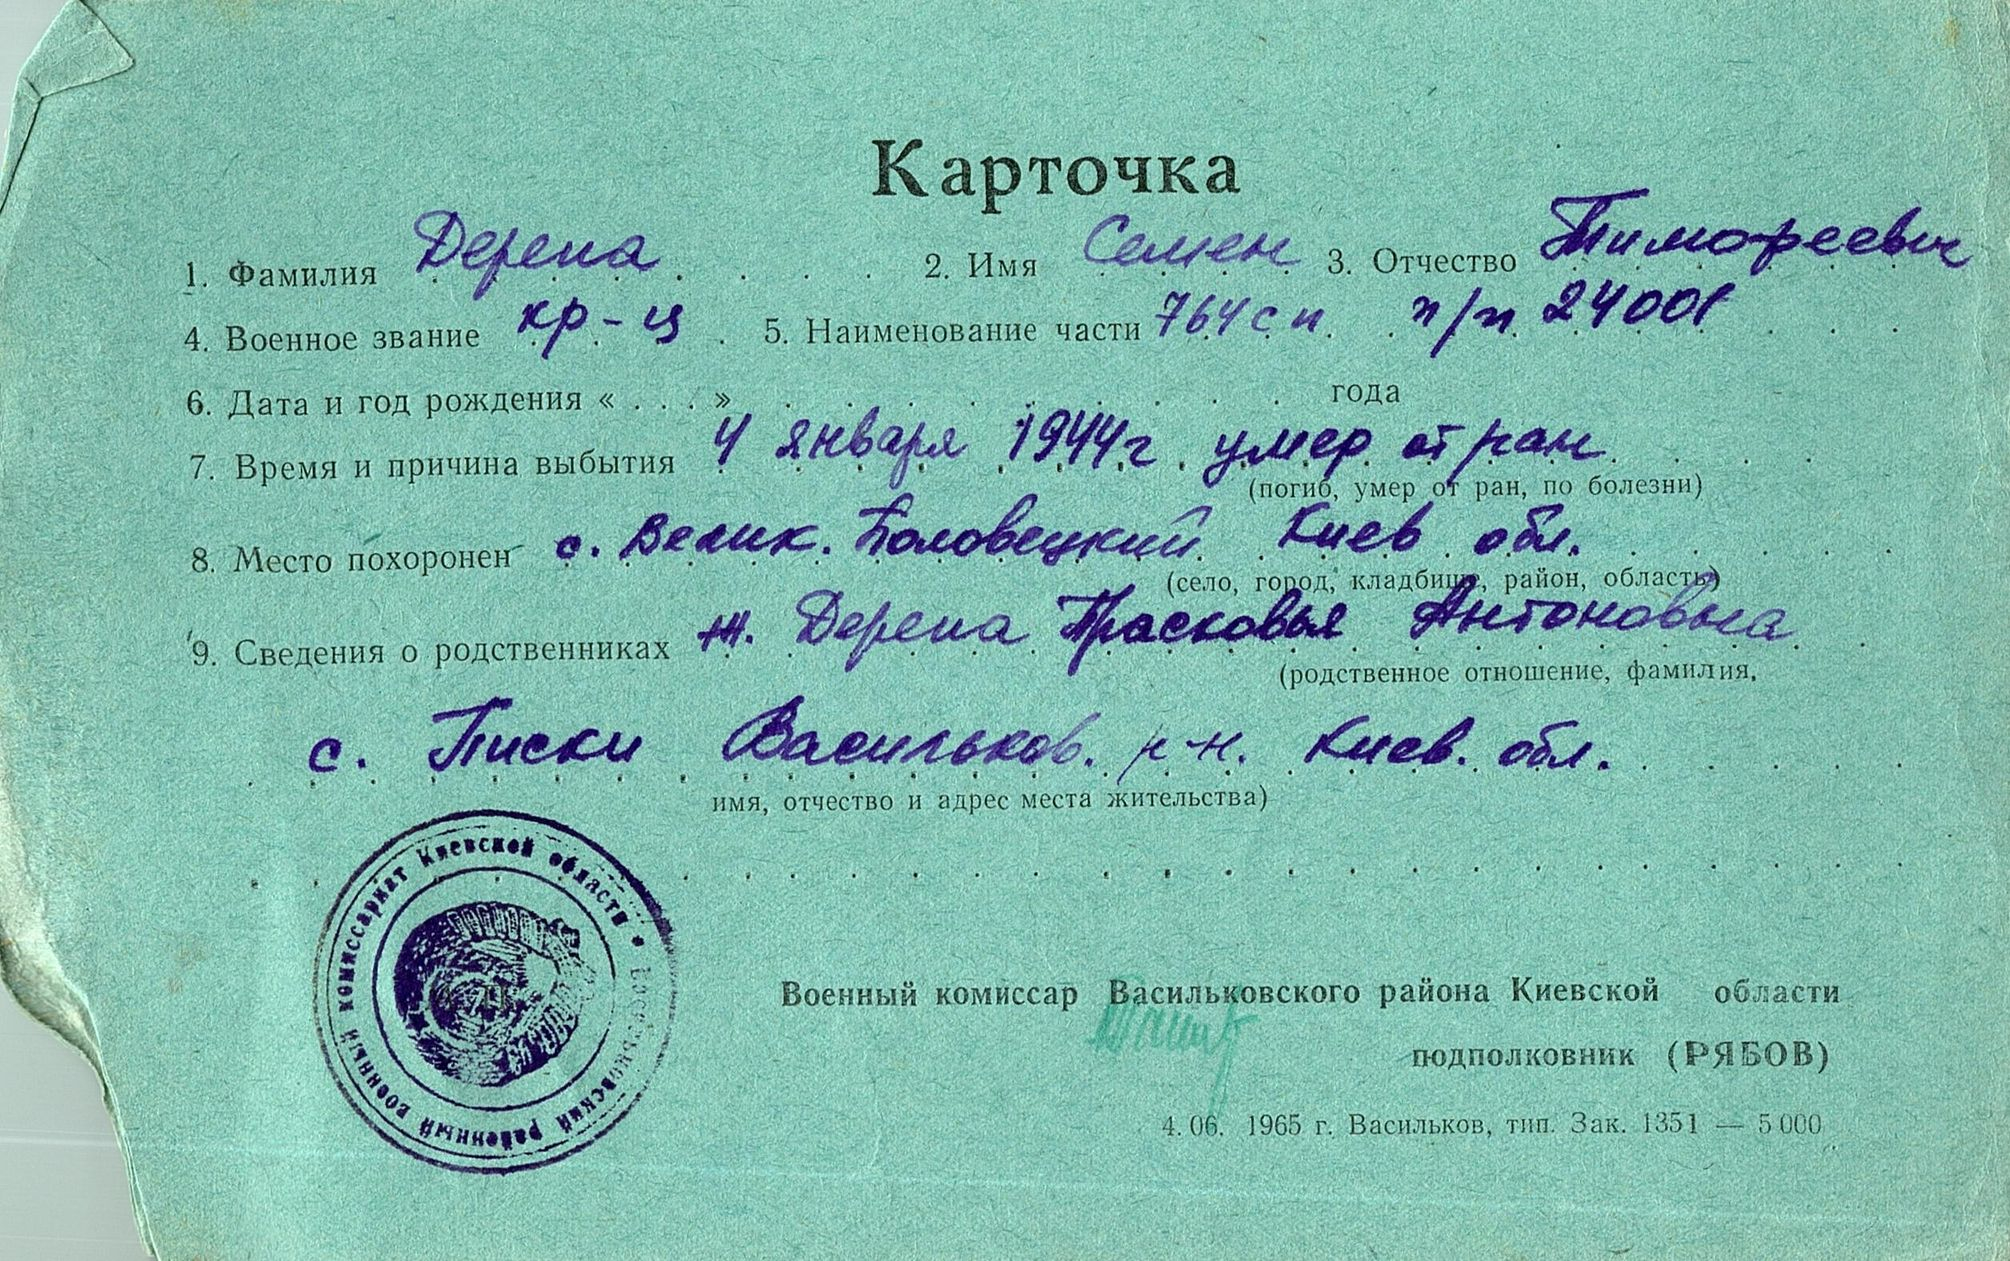 Карточка
1. Фамилия Дерепа 2. Имя Семен 3. Отчество Тимофеевич
4. Военное звание кр-ц 5. Наименование части 764 сп п/п 24001
6. Дата и год рождения « . . . » года
7. Время и причина выбытия 4 января 1944г умер от ран
(погиб, умер от ран, по болезни)
8. Место похоронен с. Велик. Половецкий Киев обл.
(село, город, кладбище, район, область)
9. Сведения о родственниках ж. Дерепа Прасковья Антоновна
(родственное отношение, фамилия,
с. Писки Васильков. р-н. Киев. обл.
имя, отчество и адрес места жительства)
Васильковский районный военный комиссариат Киевской области *
Военный комиссар Васильковского района Киевской области
подполковник (РЯБОВ)
4. 06. 1965 г. Васильков, тип. Зак. 1351 — 5 000